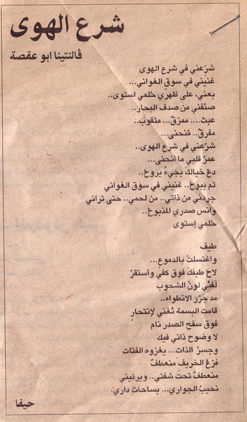 شرع الهوى
ڤالنتينا ابو عقصة
شرّعني في شرع الهوى
غنيني في سوق الغواني...
بعني، على ظهري ظلمي إستوى..
صنّفني من صدف البحار..
عبث.... ممزّق... مثقوب..
مفرق.. فنحنى...
شرّعني في شرع الهوى..
عمرّ قلبي ما انحنى...
دع خيالك يجيء يروح..
ثم يبوح.. غنيني في سوق الغواني
جردني من ذاتي.. من لحمي.. حتى تراني
وأنس صدري المذبوح..
ظلمي إستوى
طيف
واغتسلت بالدموع...
لاح طيفك فوق كفي واستقرّ
لفّني لون الشحوب
مد جزر الانطواء..
قامت البسمة تُغني لإنتحار
فوق سفح الصدر نام
لا وضوح ذاتي فيك
وجسر الذات... يغزوه الفتات
فزع الخريف منعطف
منعطف تحت شفتي.. ويرثيني
نحيب الجواري... بساحات داري.
حيفا